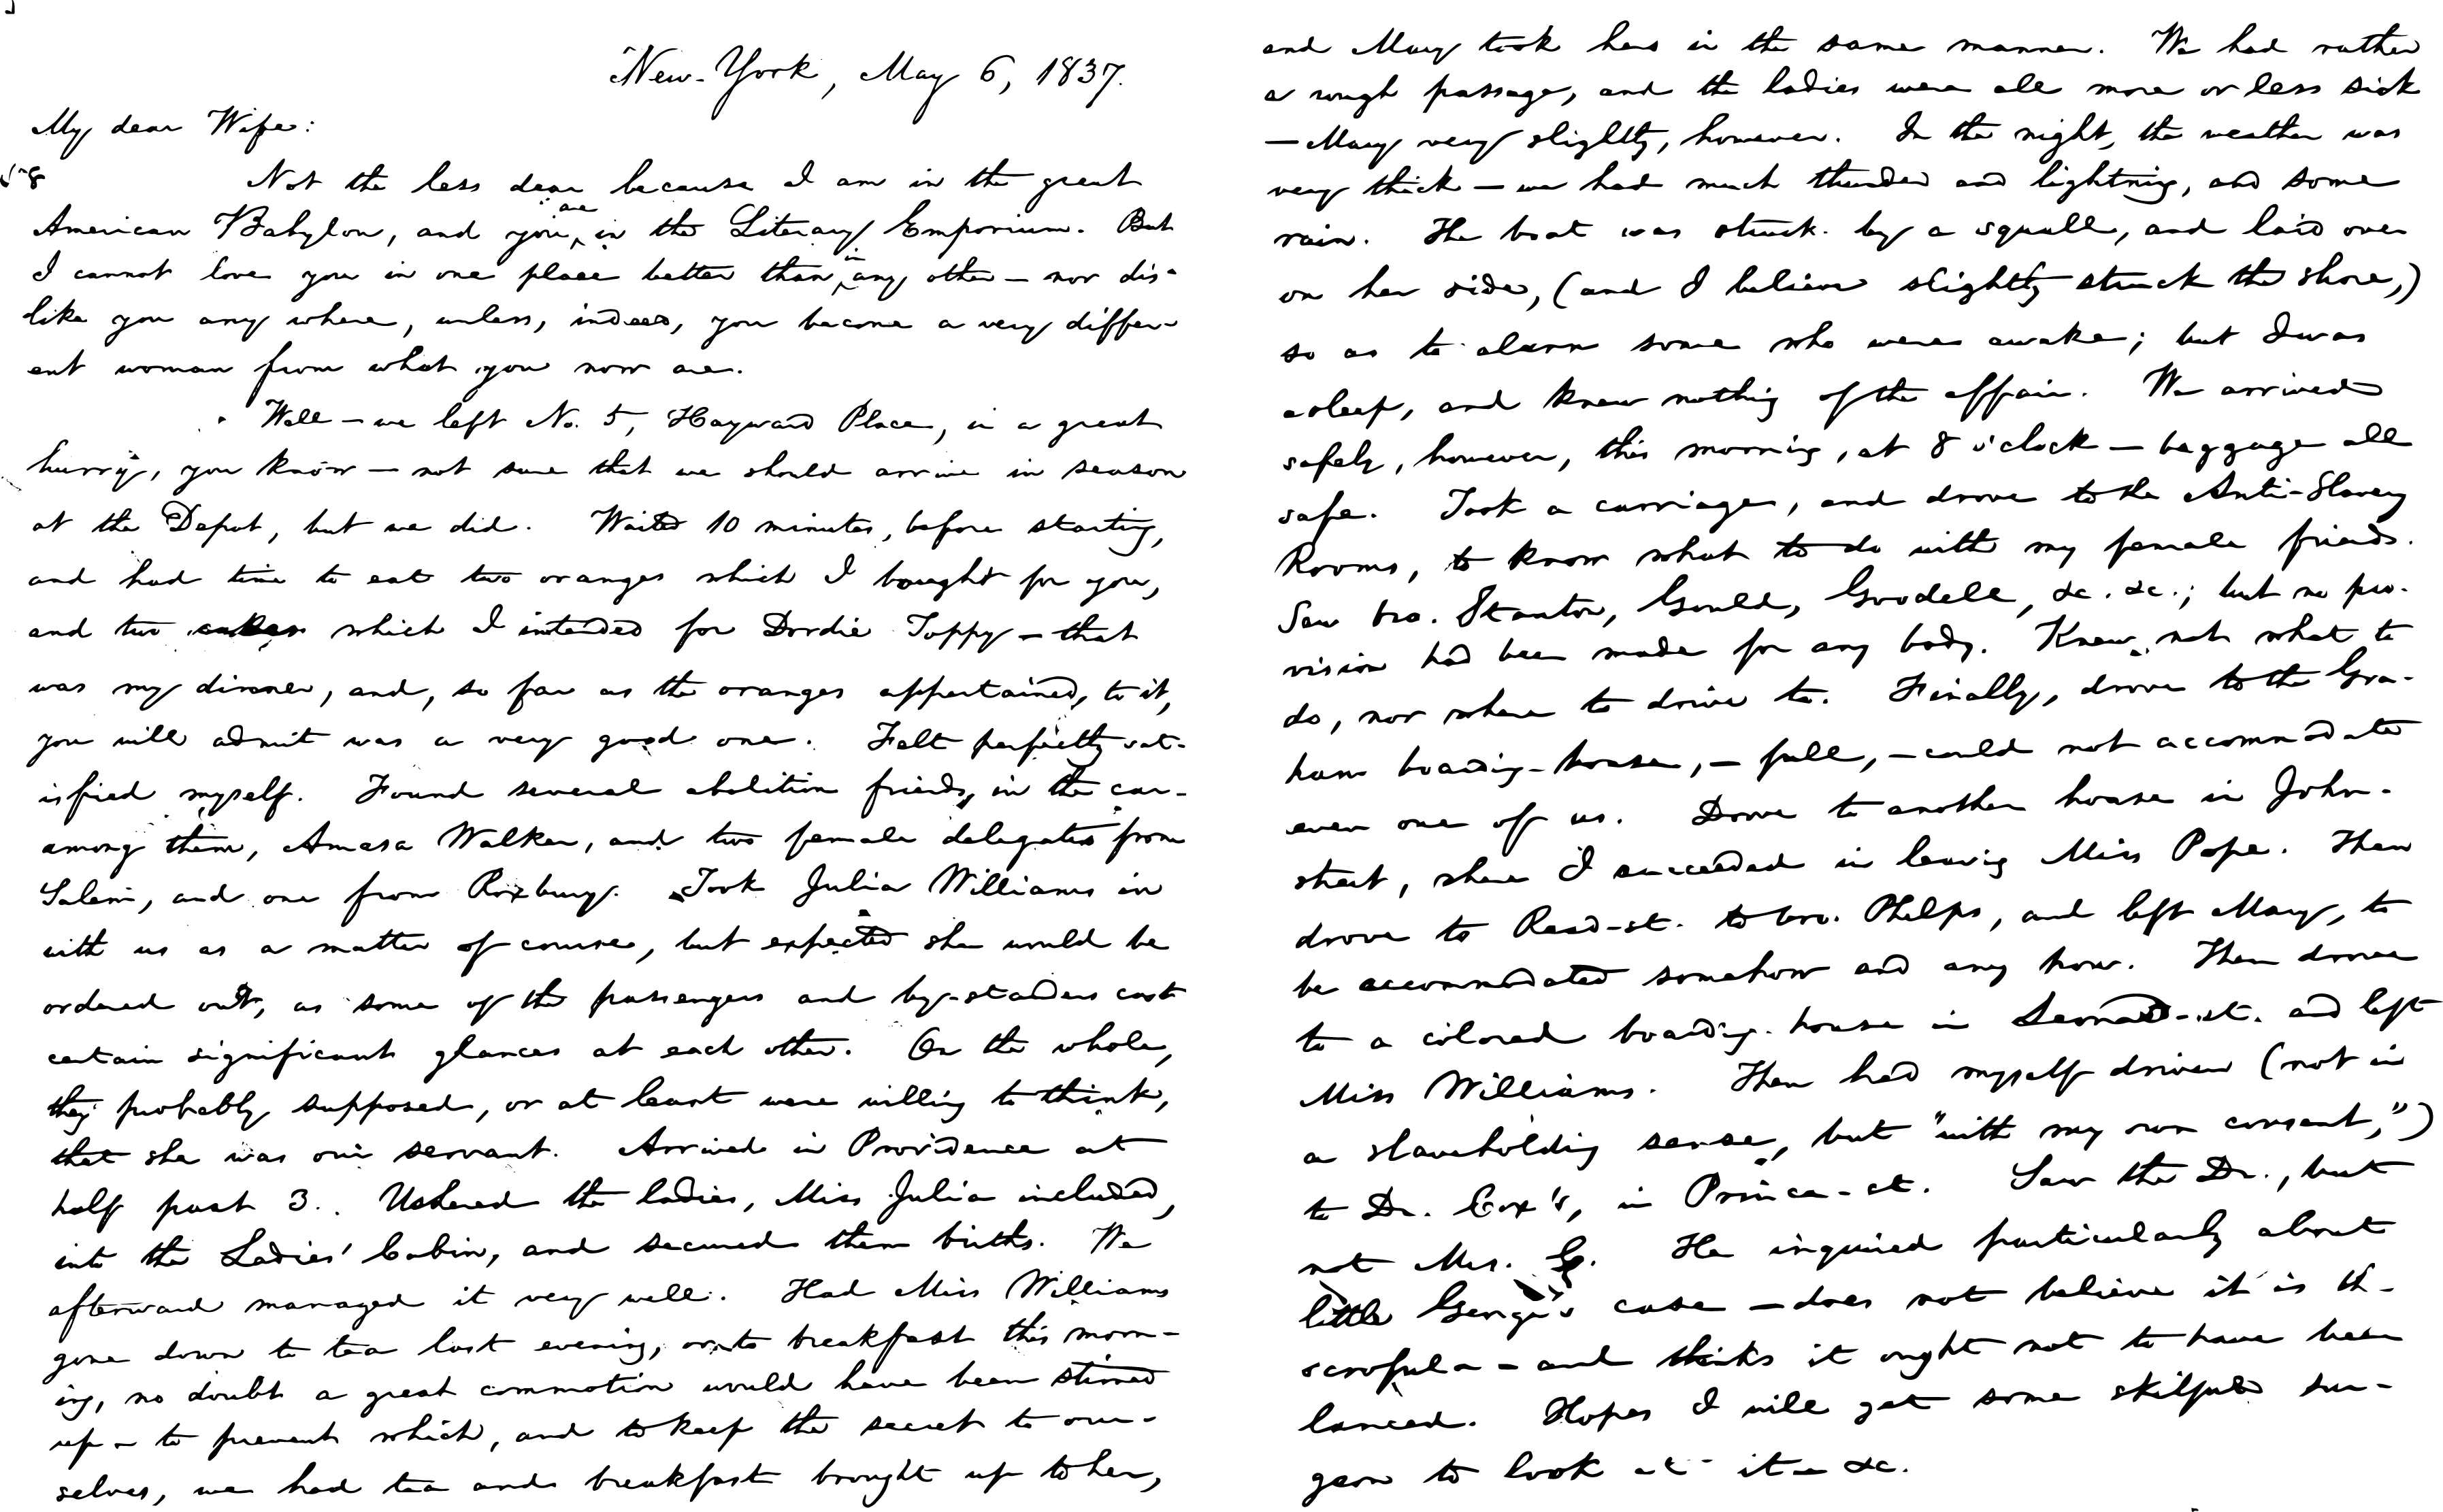 New-York, May 6, 1837.
My dear Wife:
Not the less dear because I am in the great
American Babylon, and you are in the Literary Emporium. But
I cannot love you in one place better than in any other — nor dis-
like you any where, unless, indeed, you become a very differ-
ent woman from what you now are.
Well — we left No. 5, Hayward Place, in a great
hurry, you know — not sure that we should arrive in season
at the Depot, but we did. Waited 10 minutes, before starting,
and had time to eat two oranges which I bought for you,
and two cakes which I intended for Dordie Toppy — that
was my dinner, and, so far as the oranges appertained, to it,
you will admit was a very good one. Felt perfectly sat-
isfied myself. Found several abolition friends, in the car-
among them, Amasa Walker, and two female delegates from
Salem, and one from Roxbury. Took Julia Williams in
with us as a matter of course, but expected she would be
ordered out, as some of the passengers and by-standers cast
certain significant glances at each other. On the whole,
they probably supposed, or at least were willing to think,
that she was our servant. Arrived in Providence at
half past 3. Ushered the ladies, Miss Julia included,
into the Ladies' Cabin, and secured them births. We
afterward managed it very well. Had Miss Williams
gone down to tea last evening, or to breakfast this morn-
ing, no doubt a great commotion would have been stirred
up — to prevent which, and to keep the secret to our-
selves, we had tea and breakfast brought up to her,
and Mary took hers in the same manner. We had rather
a rough passage, and the ladies were all more or less sick
— Mary very slightly, however. In the night, the weather was
very thick — we had much thunder and lightning, and some
rain. The boat was struck by a squall, and laid over
on her side, (and I believe slightly struck the shore,)
so as to alarm some who were awake; but I was
asleep, and knew nothing of the affair. We arrived
safely, however, this morning, at 8 o'clock — baggage all
safe. Took a carriage, and drove to the Anti-Slavery
Rooms, to know what to do with my female friends.
Saw bro. Stanton, Gould, Goodell, &c. &c.; but no pro-
vision had been made for any body. Knew not what to
do, nor where to drive to. Finally, drove to the Gra-
ham boarding-house, — full, — could not accommodate
even one of us. Drove to another house in John-
street, where I succeeded in leaving Miss Pope. Then
drove to Read-st. to bro. Phelps, and left Mary, to
be accommodated somehow and any how. Then drove
to a colored boarding-house in Leonard-st. and left
Miss Williams. Then had myself driven (not in
a slaveholding sense, but "with my own consent,")
to Dr. Cox's, in Prince-st. Saw the Dr., but
not Mrs. C. He inquired particularly about
little Georgie's case — does not believe it is th-
scrofula — and thinks it ought not to have been
lanced. Hopes I will get some skilful sur-
geon to look at it — &c.